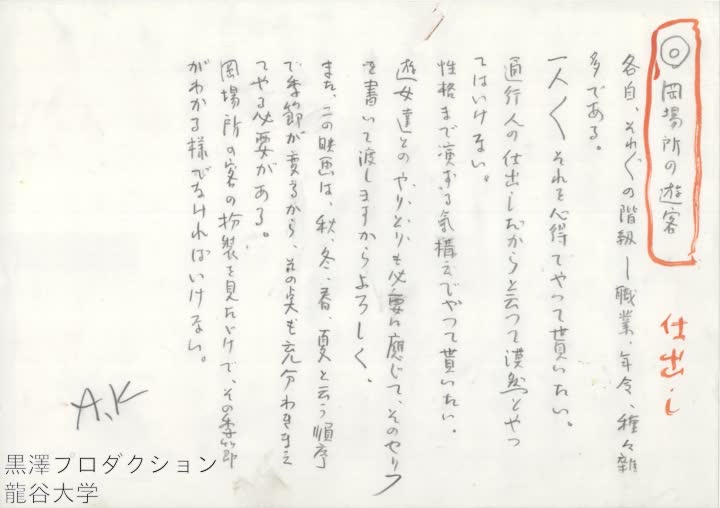 ◎岡場所の遊客
仕出し
各自、それ〲の階級―職業、年令、種々雑
多である。
一人〱それを心得てやって貰いたい。
通行人の仕出しだからと云って漠然とやっ
てはいけない。
性格まで演ずる気構えでやって貰いたい。
遊女達とのやりとりも必要に應じて、そのセリフ
を書いて渡しますからよろしく。
また、この映画は、秋、冬、春、夏と云う順序
で季節が変るから、その点も充分わきまえ
てやる必要がある。
岡場所の客の扮装を見たゞけで、その季節
がわかる様でなければいけない。
A.K
黒澤プロダクション
龍谷大学